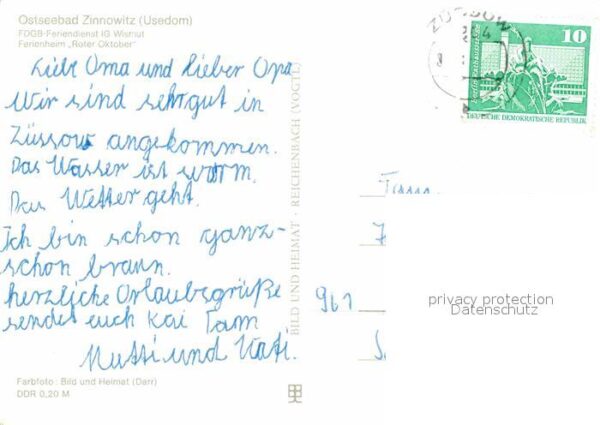 Ostseebad Zinnowitz (Usedom)
FDGB-Feriendienst IG Wismut
Ferienheim „Roter Oktober"
Liebe Oma und lieber Opa
Wir sind sehr gut in
Züssow angekommen.
Das Wasser ist warm.
Das Wetter geht.
Ich bin schon ganz-
schon braun.
herzliche Orlaubsgrüße
sendet euch Kai
Mutti und Kati.
Farbfoto: Bild und Heimat (Darr)
DDR 0,20 M
BILD UND HEIMAT · REICHENBACH (VOGTL)
ZÜSSOW
10
DEUTSCHE DEMOKRATISCHE REPUBLIK
961
privacy protection
Datenschutz